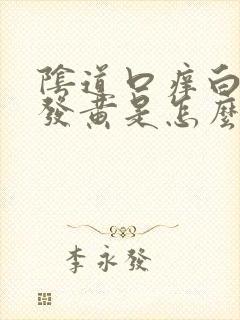 陰道口痒白
發黄是怎麼
李永發